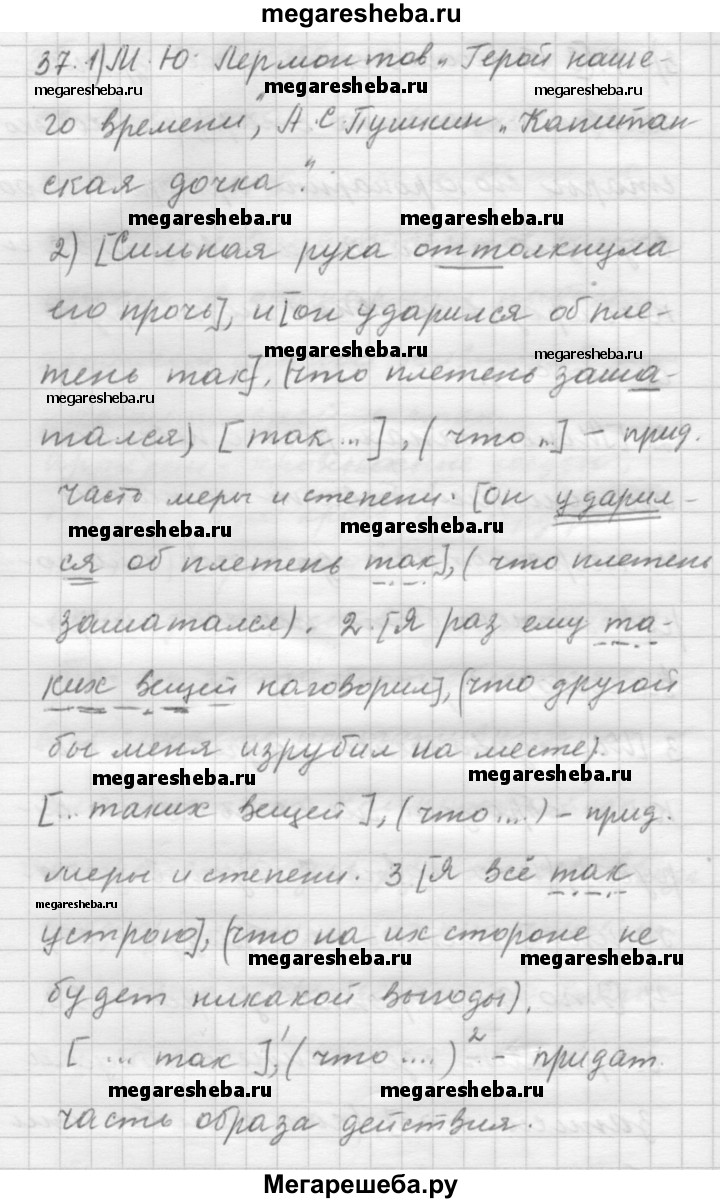 megaresheba.ru
37. 1) М. Ю. Лермонтов „Герой наше-
megaresheba.ru megaresheba.ru megaresheba.ru
го времени", А. С. Пушкин „Капитан-
ская дочка".
megaresheba.ru megaresheba.ru
2) [Сильная рука оттолкнула
его прочь], и [он ударился об пле-
megaresheba.ru megaresheba.ru
тень так], (что плетень заша-
megaresheba.ru
тался) [так...], (что ..] – прид.
часть меры и степени. [Он ударил-
megaresheba.ru megaresheba.ru
ся об плетень так], (что плетень
зашатался). 2. [Я раз ему та-
ких вещей наговорил], (что другой
бы меня изрубил на месте).
megaresheba.ru megaresheba.ru
[... таких вещей], (что ....) – прид.
меры и степени. 3 [Я всё так
megaresheba.ru
устрою], (что на их стороне не
megaresheba.ru megaresheba.ru
будет никакой выгоды).
[ ... так ]¹, (что ....)² – придат.
megaresheba.ru megaresheba.ru
часть образа действия.
Мегарешеба.ру